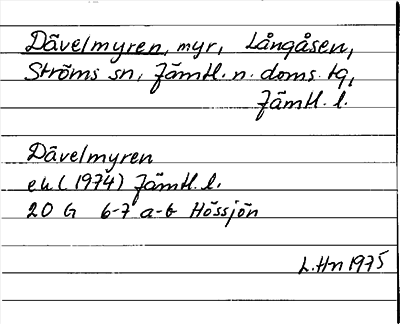 Dävelmyren, myr, Långåsen,
Ströms sn, Jämtl. n. doms. tg,
Jämtl. l.
Dävelmyren
ek (1974) Jämtl. l.
20 G 6-7 a-b Hössjön
L.Hn 1975